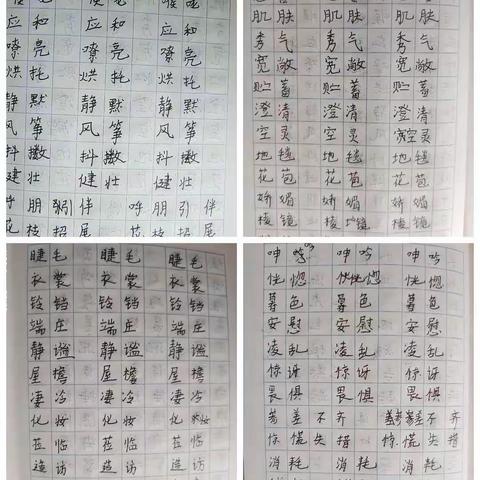 应和 应和 应和
嘹亮 嘹亮 嘹亮
烘托 烘托 烘托
静默 静默 静默
风筝 风筝 风筝
抖擞 抖擞 抖擞
健壮 健壮 健壮
呼朋引伴 呼朋引伴
花枝招 花枝招
肌肤 肌肤 肌肤
秀气 秀气 秀气
宽敞 宽敞 宽敞
贮蓄 贮蓄 贮蓄
澄清 澄清 澄清
空灵 空灵 空灵
地毯 地毯 地毯
花苞 花苞 花苞
娇媚 娇媚 娇媚
棱镜 棱镜 棱镜
睫毛 睫毛 睫毛
衣裳 衣裳 衣裳
铃铛 铃铛 铃铛
端庄 端庄 端庄
静谧 静谧 静谧
屋檐 屋檐 屋檐
凄冷 凄冷 凄冷
化妆 化妆 化妆
莅临 莅临 莅临
造访 造访 造访
呻吟 呻吟 呻吟
恍惚 恍惚 恍惚
暮色 暮色 暮色
安慰 安慰 安慰
凌乱 凌乱 凌乱
惊讶 惊讶 惊讶
畏惧 畏惧 畏惧
参差不齐 参差不齐
惊慌失措 惊慌失措
消耗 消耗 消耗